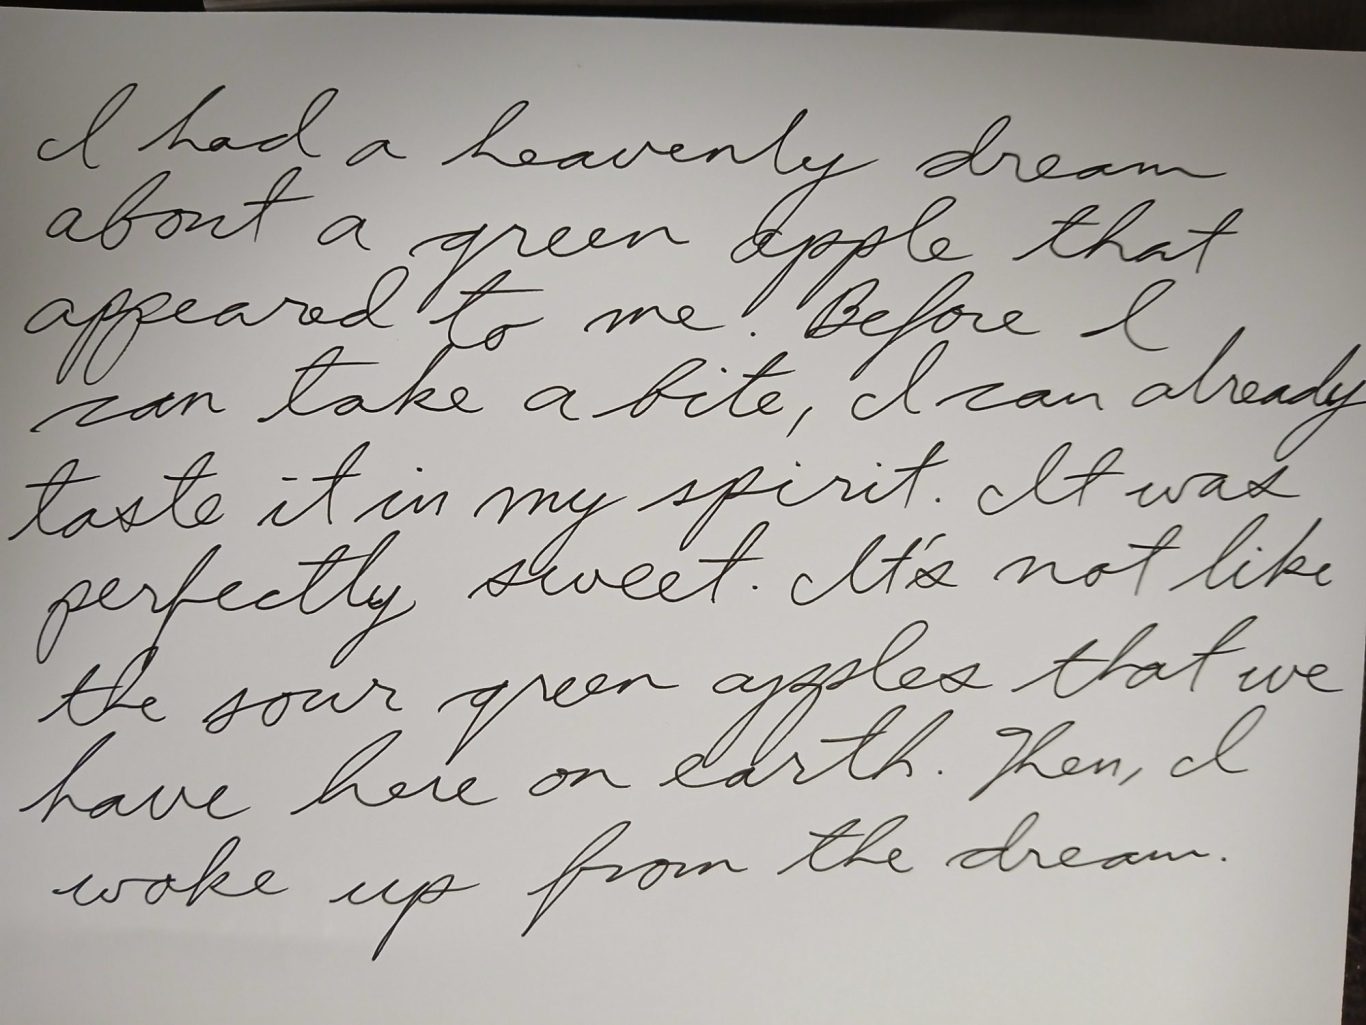 I had a heavenly dream
about a green apple that
appeared to me. Before I
can take a bite, I can already
taste it in my spirit. It was
perfectly sweet. It's not like
the sour green apples that we
have here on earth. Then, I
woke up from the dream.